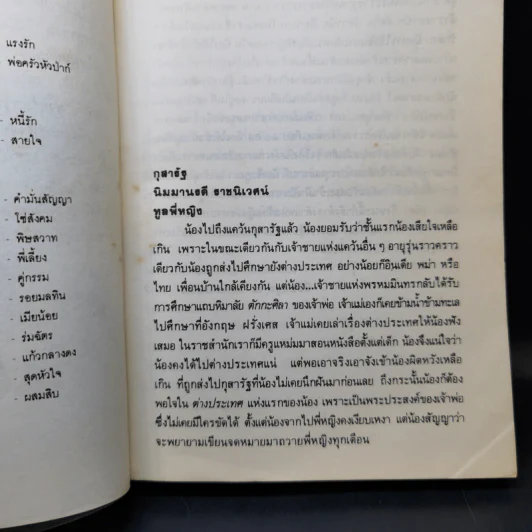 แรงรัก
พ่อครัวหัวป่าก์
- หนี้รัก
- สายใจ
- คำมั่นสัญญา
- ใช่สังคม
- พิษสวาท
- พี่เลี้ยง
- คู่กรรม
- รอยมลทิน
- เมียน้อย
- ร่มฉัตร
- แก้วกลางดง
- สุดหัวใจ
- ผสมสิบ
กุสารัฐ
นิมมานรดี ราชนิเวศน์
ทูลพี่หญิง
น้องไปถึงแคว้นกุสารัฐแล้ว น้องยอมรับว่าชั้นแรกน้องเสียใจเหลือ
เกิน เพราะในขณะเดียวกันกับเจ้าชายแห่งแคว้นอื่น ๆ อายุรุ่นราวคราว
เดียวกับน้องถูกส่งไปศึกษายังต่างประเทศ อย่างน้อยก็อินเดีย พม่า หรือ
ไทย เพื่อนบ้านใกล้เคียงกัน แต่น้อง...เจ้าชายแห่งพรหมมินทรกลับได้รับ
การศึกษาแถบหิมาลัย ตักกะศิลา ของเจ้าพ่อ เจ้าแม่เองก็เคยข้ามน้ำข้ามทะเล
ไปศึกษาที่อังกฤษ ฝรั่งเศส เจ้าแม่เคยเล่าเรื่องต่างประเทศให้น้องฟัง
เสมอ ในราชสำนักเราก็มีครูแหม่มมาสอนหนังสือตั้งแต่เด็ก น้องจึงแน่ใจว่า
น้องคงได้ไปต่างประเทศแน่ แต่พอเอาจริงเอาจังเข้าน้องผิดหวังเหลือ
เกิน ที่ถูกส่งไปกุสารัฐที่น้องไม่เคยนึกฝันมาก่อนเลย ถึงกระนั้นน้องก็ต้อง
พอใจใน ต่างประเทศ แห่งแรกของน้อง เพราะเป็นพระประสงค์ของเจ้าพ่อ
ซึ่งไม่เคยมีใครขัดได้ ตั้งแต่น้องจากไปพี่หญิงคงเงียบเหงา แต่น้องสัญญาว่า
จะพยายามเขียนจดหมายมาถวายพี่หญิงทุกเดือน